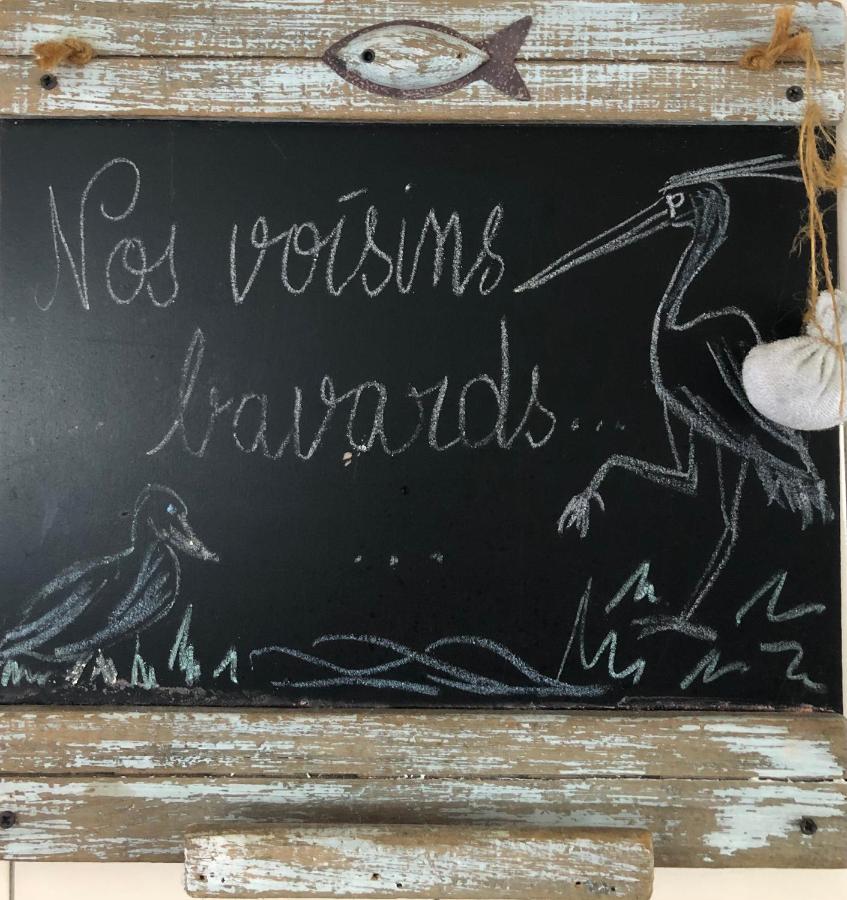 Nos voisins
bavards...
...